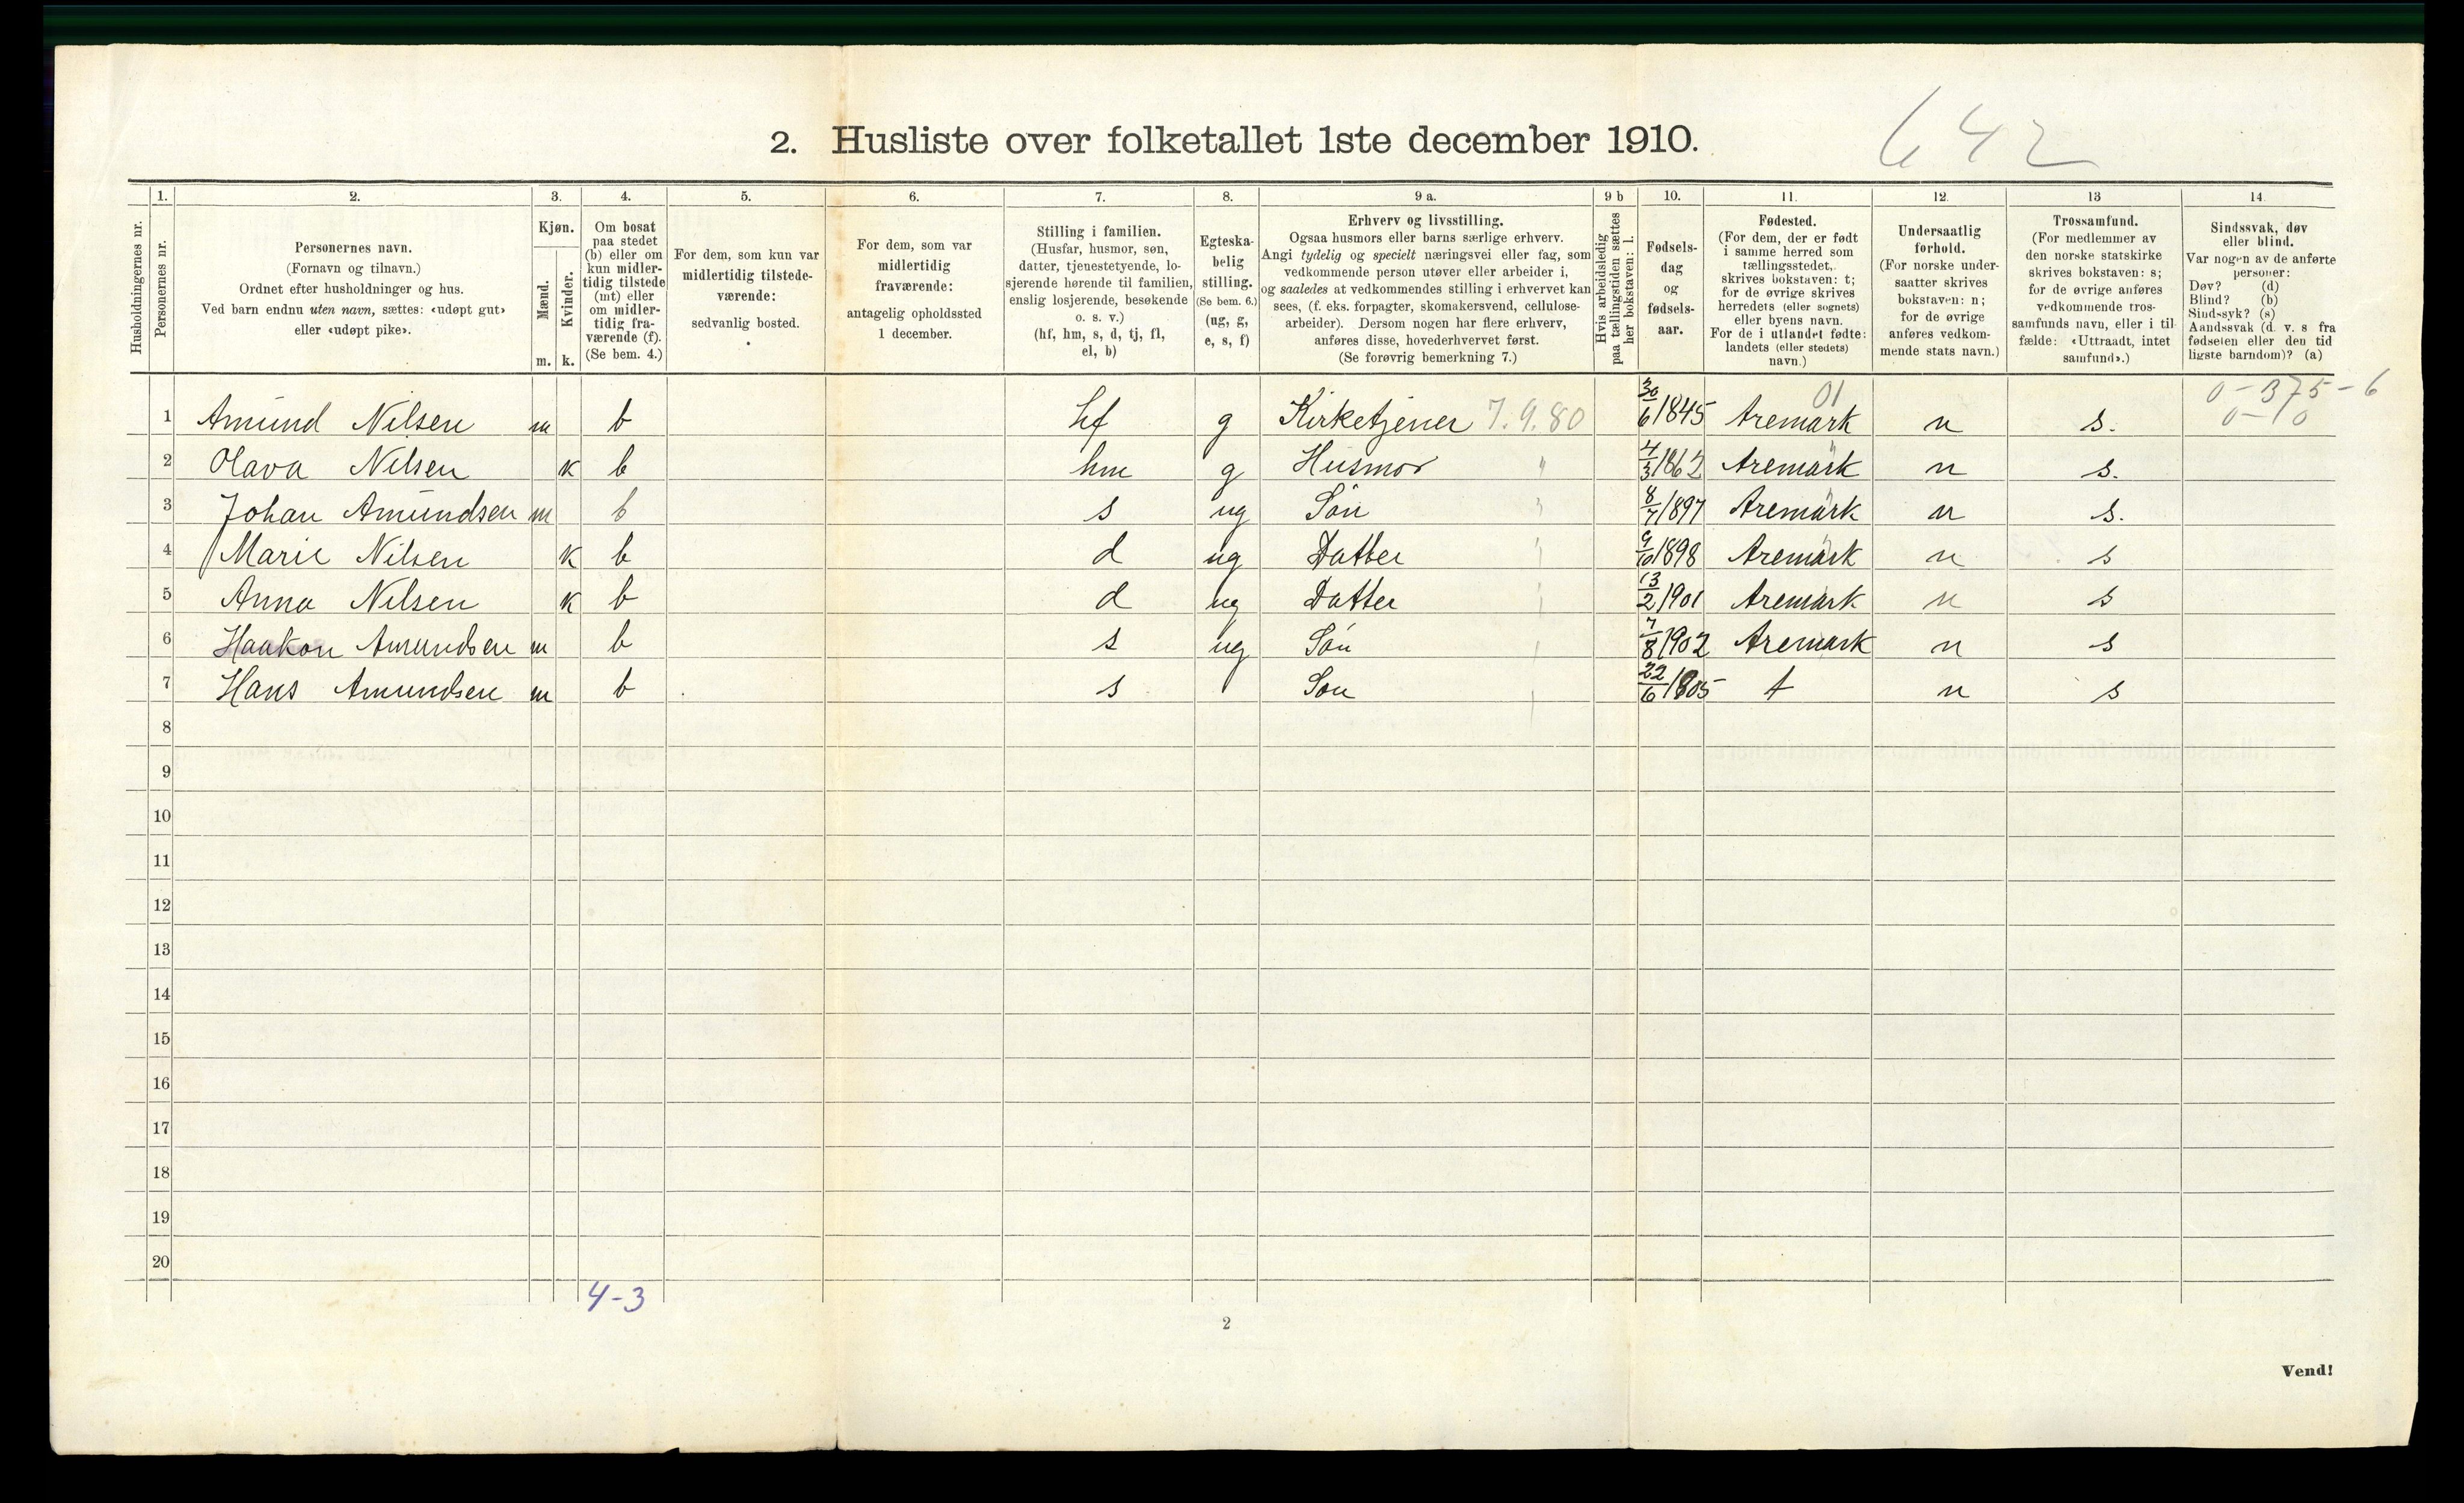 642
2. Husliste over folketallet 1ste december 1910.
Husholdningernes nr.
1.
Personernes nr.
2.
Personernes navn.
(Fornavn og tilnavn.)
Ordnet efter husholdninger og hus.
Ved barn endnu uten navn, sættes: «udøpt gut»
eller «udøpt pike».
3.
Kjøn.
Mænd.
m.
Kvinder.
k.
4.
Om bosat
paa stedet
(b) eller om
kun midler-
tidig tilstede
(mt) eller
om midler-
tidig fra-
værende (f).
(Se bem. 4.)
5.
For dem, som kun var
midlertidig tilstede-
værende:
sedvanlig bosted.
6.
For dem, som var
midlertidig
fraværende:
antagelig opholdssted
1 december.
7.
Stilling i familien.
(Husfar, husmor, søn,
datter, tjenestetyende, lo-
sjerende hørende til familien,
enslig losjerende, besøkende
o. s. v.)
(hf, hm, s, d, tj, fl,
el, b)
8.
Egteska-
belig
stilling.
(Se bem. 6.)
(ug, g,
e, s, f)
9 a.
Erhverv og livsstilling.
Ogsaa husmors eller barns særlige erhverv.
Angi tydelig og specielt næringsvei eller fag, som
vedkommende person utøver eller arbeider i,
og saaledes at vedkommendes stilling i erhvervet kan
sees, (f. eks. forpagter, skomakersvend, cellulose-
arbeider). Dersom nogen har flere erhverv,
anføres disse, hovederhvervet først.
(Se forøvrig bemerkning 7.)
9 b
Hvis arbeidsledig
paa tællingstiden sættes
her bokstaven: l.
10.
Fødsels-
dag
og
fødsels-
aar.
11.
Fødested.
(For dem, der er født
i samme herred som
tællingsstedet,
skrives bokstaven: t;
for de øvrige skrives
herredets (eller sognets)
eller byens navn.
For de i utlandet fødte:
landets (eller stedets)
navn.)
12.
Undersaatlig
forhold.
(For norske under-
saatter skrives
bokstaven: n;
for de øvrige
anføres vedkom-
mende stats navn.)
13
Trossamfund.
(For medlemmer av
den norske statskirke
skrives bokstaven: s;
for de øvrige anføres
vedkommende tros-
samfunds navn, eller i til
fælde: «Uttraadt, intet
samfund».)
14.
Sindssvak, døv
eller blind.
Var nogen av de anførte
personer:
Døv? (d)
Blind? (b)
Sindssyk? (s)
Aandssvak (d. v. s fra
fødselen eller den tid
ligste barndom)? (a)
01 0-375-6
1 Amund Nilsen m b hf g Kirketjener 7.9.80 30/6 1845 Aremark n s. 0-10
2 Olava Nilsen k b hm g Husmor " 4/3 1862 Aremark n s.
3 Johan Amundsen m b s ug Søn " 8/7 1897 Aremark n s.
4 Marie Nilsen k b d ug Datter " 9/10 1898 Aremark n s
5 Anna Nilsen k b d ug Datter 13/2 1901 Aremark n s
6 Haakon Amundsen m b s ug Søn 7/8 1902 Aremark n s
7 Hans Amundsen m b s Søn 22/6 1905 t n s
8
9
10
11
12
13
14
15
16
17
18
19
20
4-3
2
Vend!